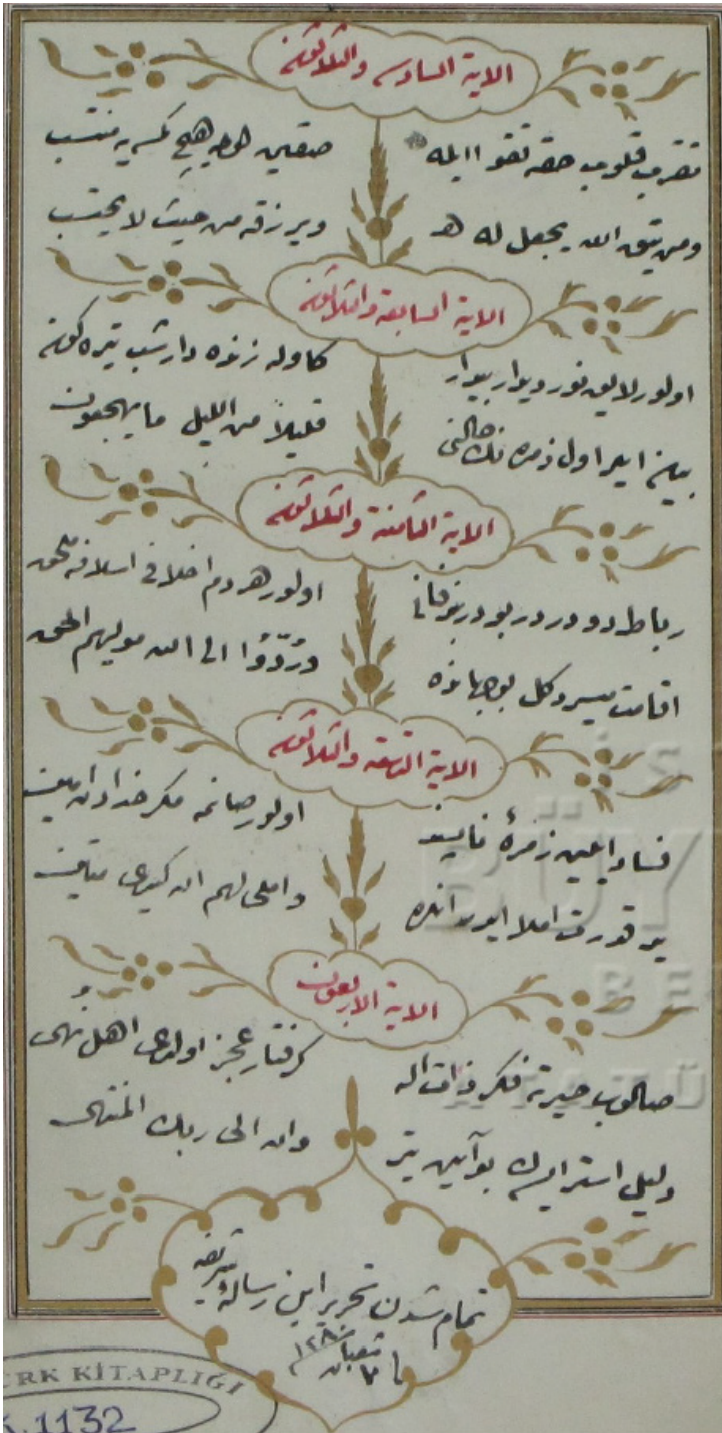 الاية السادسه والثلاثون
تقرب قلوب حقه تقوا ايله
صقين اولمه هيچ كسيه منتسب
ومن يتق الله يجعل له
ويرزقه من حيث لا يحتسب
الاية السابعه والثلاثون
اولور لايق نور ديدار بيدار
كه اوله زنده دار شب تيره كون
بيان ايدر اول زمره نك حالنى
قليلاً من الليل ما يهجعون
الاية الثامنة والثلاثون
رباط دو دردر بو دير فانى
اولور هردم اخلافى اسلافه ملحق
اقامت ميسر دكل بو جهانده
وردّوا الى الله موليهم الحق
الاية التاسعه والثلاثون
فساد ايلين زمرهٔ
اولور صانمه مكر خدادن امين
ير قدرت املا ايدر انلره
واملى لهم ان كيدى متين
الاية الاربعون
صالوب حيرته فكر ذات اله
كرفتار عجز اولدى اهل نُهى
دليل استرايسك بو آيت يتر
وان الى ربك المنتهى
تمام شدن تحرير اين رسالهٔ شريفه
شعبان
١٢٨٠
İS
BÜY
BE
ATATÜ
RK KİTAPLIĞI
K.1132